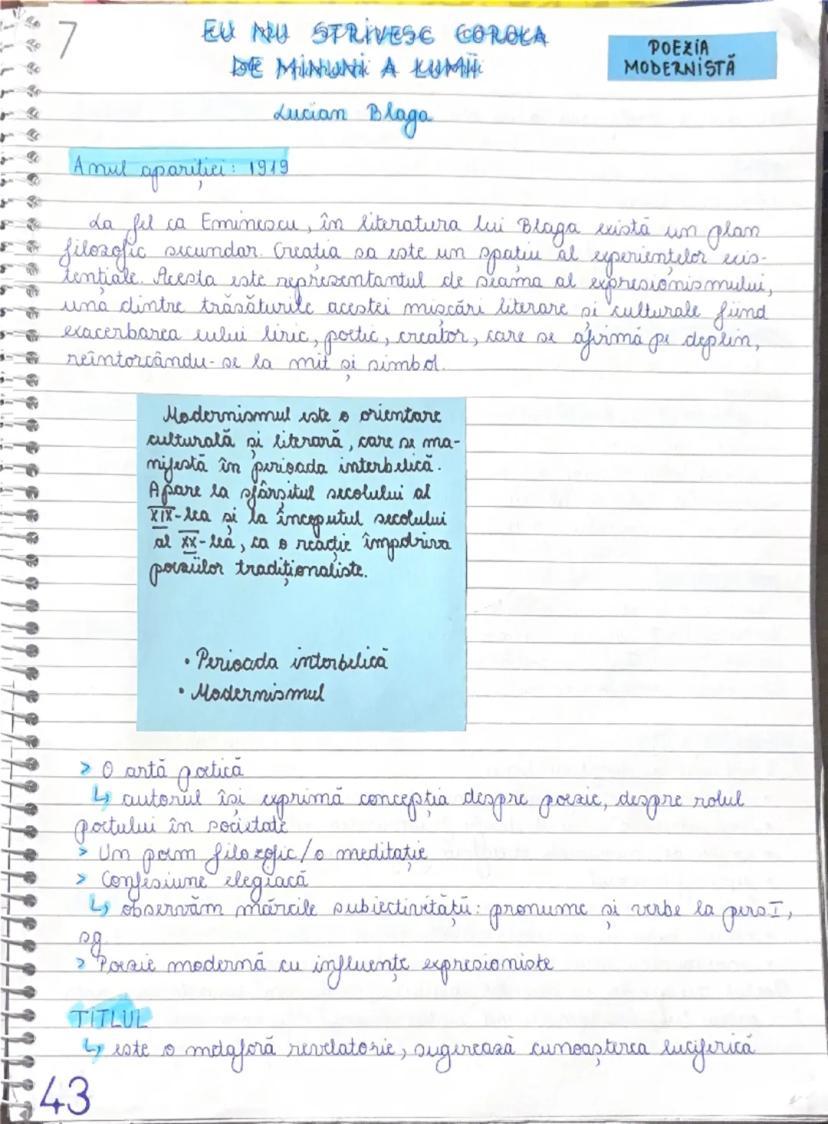 7
EU NU STRIVESC COROLA
DE MINUNI A LUMII
POEZIA
MODERNISTĂ
Lucian Blaga
Anul apariției: 1919
La fel ca Eminescu, în literatura lui Blaga există un plan
filozofic secundar. Creatia sa este un spațiu al experiențelor exis-
tențiale. Acesta este reprezentantul de seama al expresionismului,
una dintre trăsăturile acestei mișcări literare și culturale fiind
exacerbarea eului liric, poetic, creator, care se afirmă pe deplin,
reîntorcându-se la mit și simbol.
Modernismul este o orientare
culturală și literară, care se ma-
nifestă în perioada interbelică.
Apare la sfârșitul secolului al
XIX-lea și la începutul secolului
al XX-lea, ca o reacție împotriva
poeziilor tradiționaliste.
• Perioada interbelică
• Modernismul
> O artă poetică
↳ autorul își exprimă concepția despre poezie, despre rolul
poetului în societate
> Un poem filozofic/o meditație
> Confesiune elegiacă
↳ observăm mărcile subiectivității: pronume și verbe la pers I,
sg.
> Poezie modernă cu influențe expresioniste
TITLUL
↳ este o metaforă revelatorie, sugerează cunoașterea luciferică
43